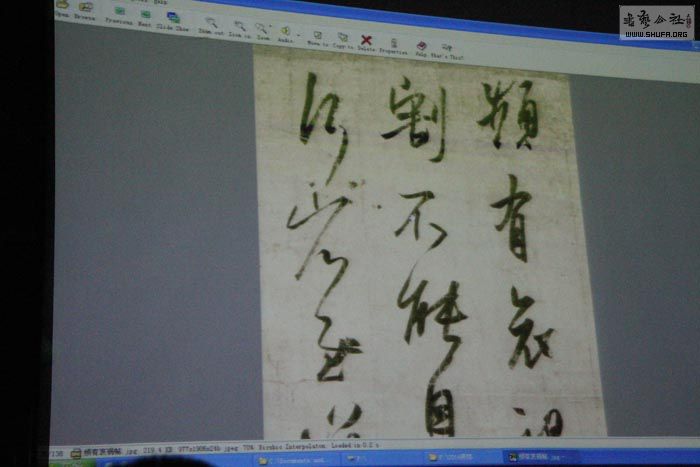 書藝公社
WWW.SHUFA.ORG
Help
Open Browse Previous Next Slide Show Zoom out Zoom in Zoom Audio Move to Copy to Delete Properties Help What's This?
頻有哀禍
割不能自
何省慰增
/136 频有哀祸帖.jpg 219.4 KB 977x1906x24b jpeg 70% Bicubic Interpolation Loaded in 0.2 s
C:\Documents and... F:\ 频有哀祸帖.jpg